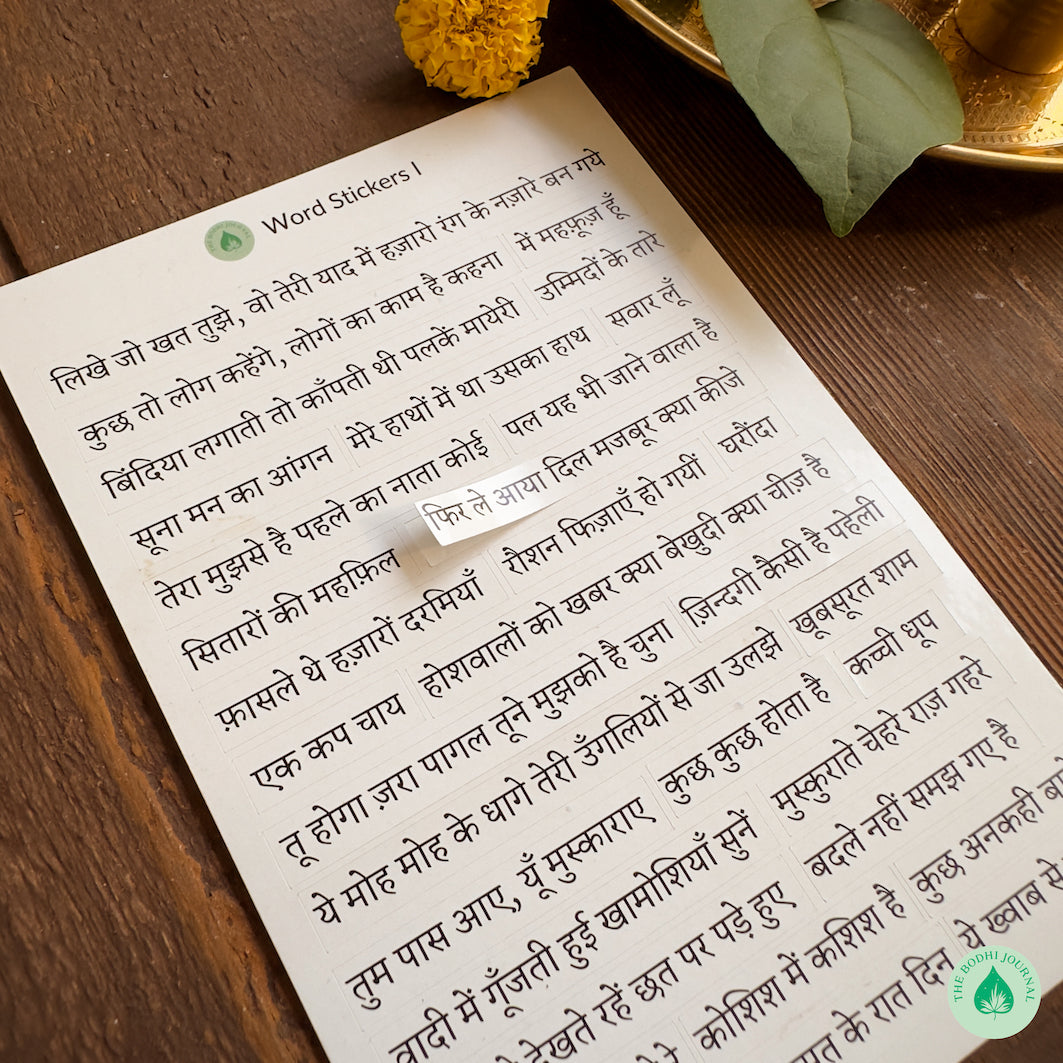 THE BODHI JOURNAL Word Stickers I
लिखे जो खत तुझे, वो तेरी याद में हज़ारो रंग के नज़ारे बन गये
कुछ तो लोग कहेंगे, लोगों का काम है कहना में महफ़ूज़ हूँ
बिंदिया लगाती तो काँपती थी पलकें मायेरी उम्मिदों के तारे
सूना मन का आंगन मेरे हाथों में था उसका हाथ सवार लूँ
तेरा मुझसे है पहले का नाता कोई पल यह भी जाने वाला है
सितारों की महफ़िल फिर ले आया दिल मजबूर क्या कीजे
फ़ासले थे हज़ारों दरमियाँ रौशन फिज़ाएँ हो गयीं घरौंदा
एक कप चाय होशवालों को खबर क्या बेखुदी क्या चीज़ है
तू होगा ज़रा पागल तूने मुझको है चुना ज़िन्दगी कैसी है पहेली
ये मोह मोह के धागे तेरी उँगलियों से जा उलझे खूबसूरत शाम
तुम पास आए, यूँ मुस्काराए कुछ कुछ होता है कच्ची धूप
वादी में गूँजती हुई खामोशियाँ सुनें मुस्कुराते चेहरे राज़ गहरे
देखते रहें छत पर पड़े हुए बदले नहीं समझ गए है
कोशिश में कशिश है कुछ अनकही
के रात दिन ये ख्वाब से
THE BODHI JOURNAL